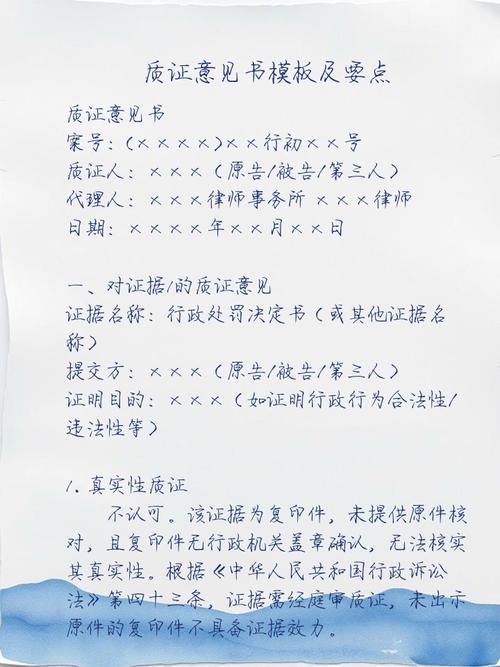 质证意见书模板及要点
质证意见书
案号:(××××)××行初××号
质证人:×××(原告/被告/第三人)
代理人:×××律师事务所 ×××律师
日期:××××年××月××日
一、对证据1的质证意见
证据名称:行政处罚决定书(或其他证据名
称)
提交方:×××(原告/被告/第三人)
证明目的:×××(如证明行政行为合法性/
违法性等)
1.真实性质证
不认可。该证据为复印件,未提供原件核
对,且复印件无行政机关盖章确认,无法核实
其真实性。根据《中华人民共和国行政诉讼
法》第四十三条,证据需经庭审质证,未出示
原件的复印件不具备证据效力。